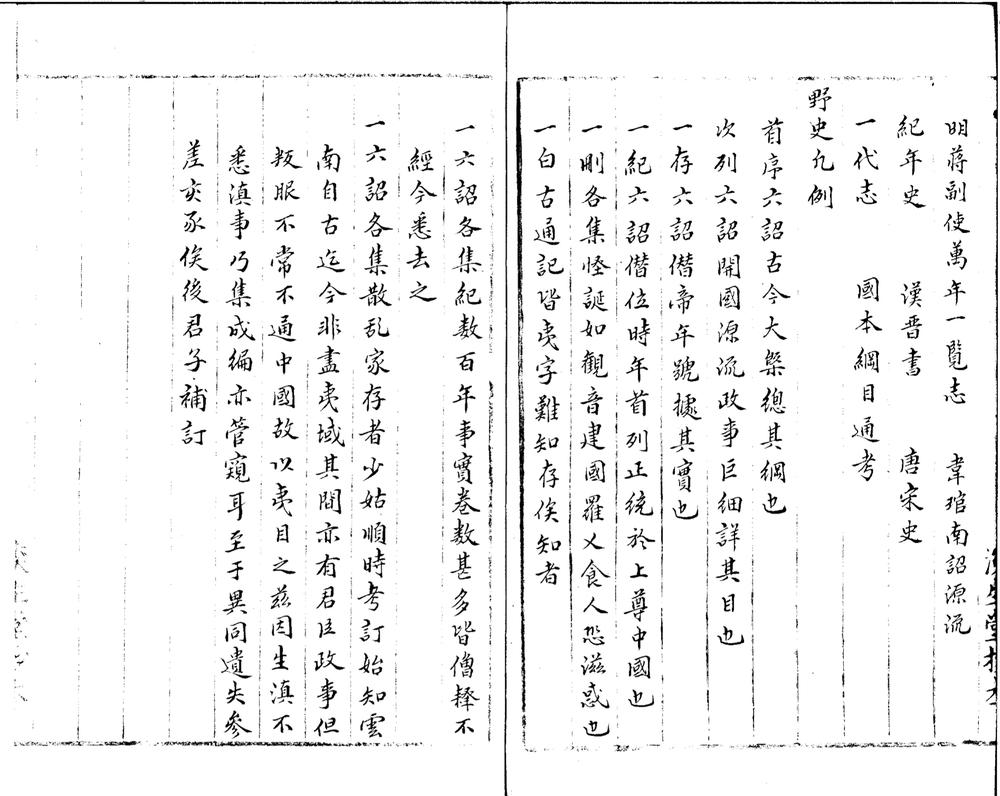 明蔣副使萬年一覧志 韋琯南詔源流
紀年史 漢晋書 唐宋史
一代志 國本綱目通考
野史凢例
首序六詔古今大槩總其綱也
次列六詔開國源流政事巨細詳其目也
一存六詔僣帝年號據其實也
一紀六詔僣位時年首列正统於上尊中國也
一刪各集怪誕如觀音建國羅乂食人恐滋惑也
一白古通記皆夷字難知存俟知者
一六詔各集紀数百年事實卷数甚多皆僧釋不
經今悉去之
一六詔各集散乱家存者少姑順時考訂始知雲
南自古迄今非盡夷域其間亦有君臣政事但
叛服不常不通中國故以夷目之兹因生滇不
悉滇事乃集成編亦管窺耳至于異同遺失參
差亥豕俟後君子補訂